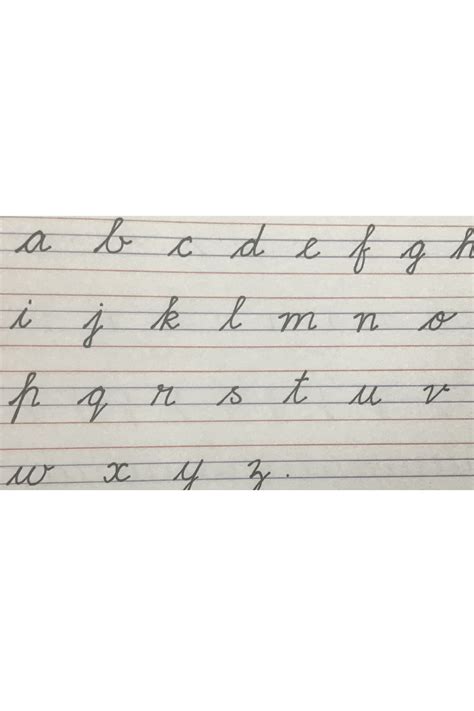 a b c d e f g h
i j k l m n o
p q r s t u v
w x y z.